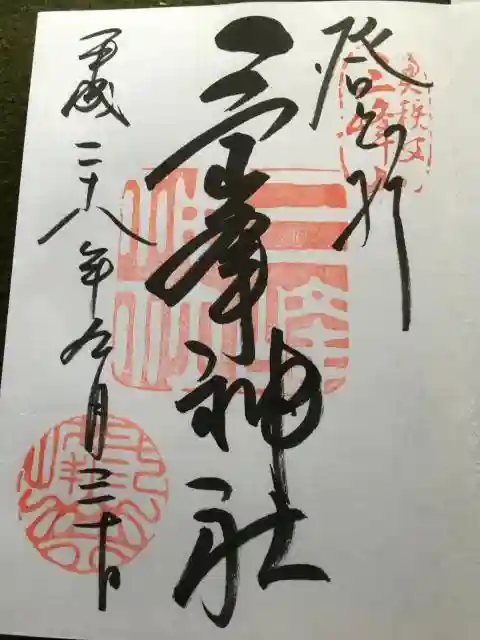 登拝
奥秩父
三峯神社
平成二十八年九月三十日